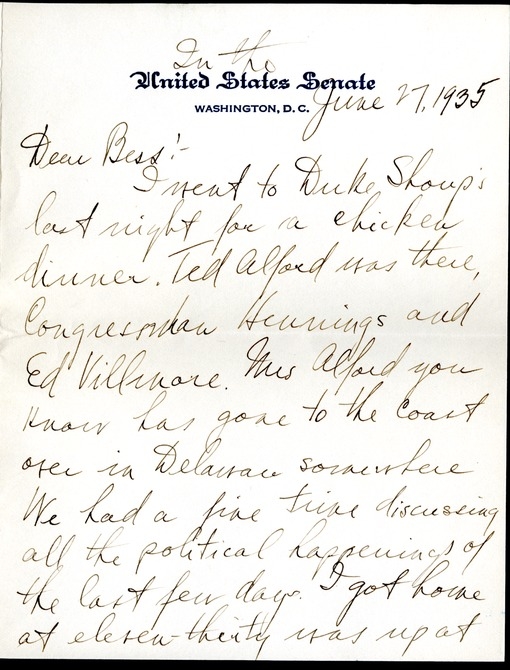 In the
United States Senate
WASHINGTON, D. C.
June 27, 1935
Dear Bess:-
I went to Duke Shoup's
last night for a chicken
dinner. Ted Alford was there,
Congressman Hennings and
Ed Villmore. Mrs Alford you
know has gone to the coast
over in Delaware somewhere
We had a fine time discussing
all the political happenings of
the last few days. I got home
at eleven-thirty was up at